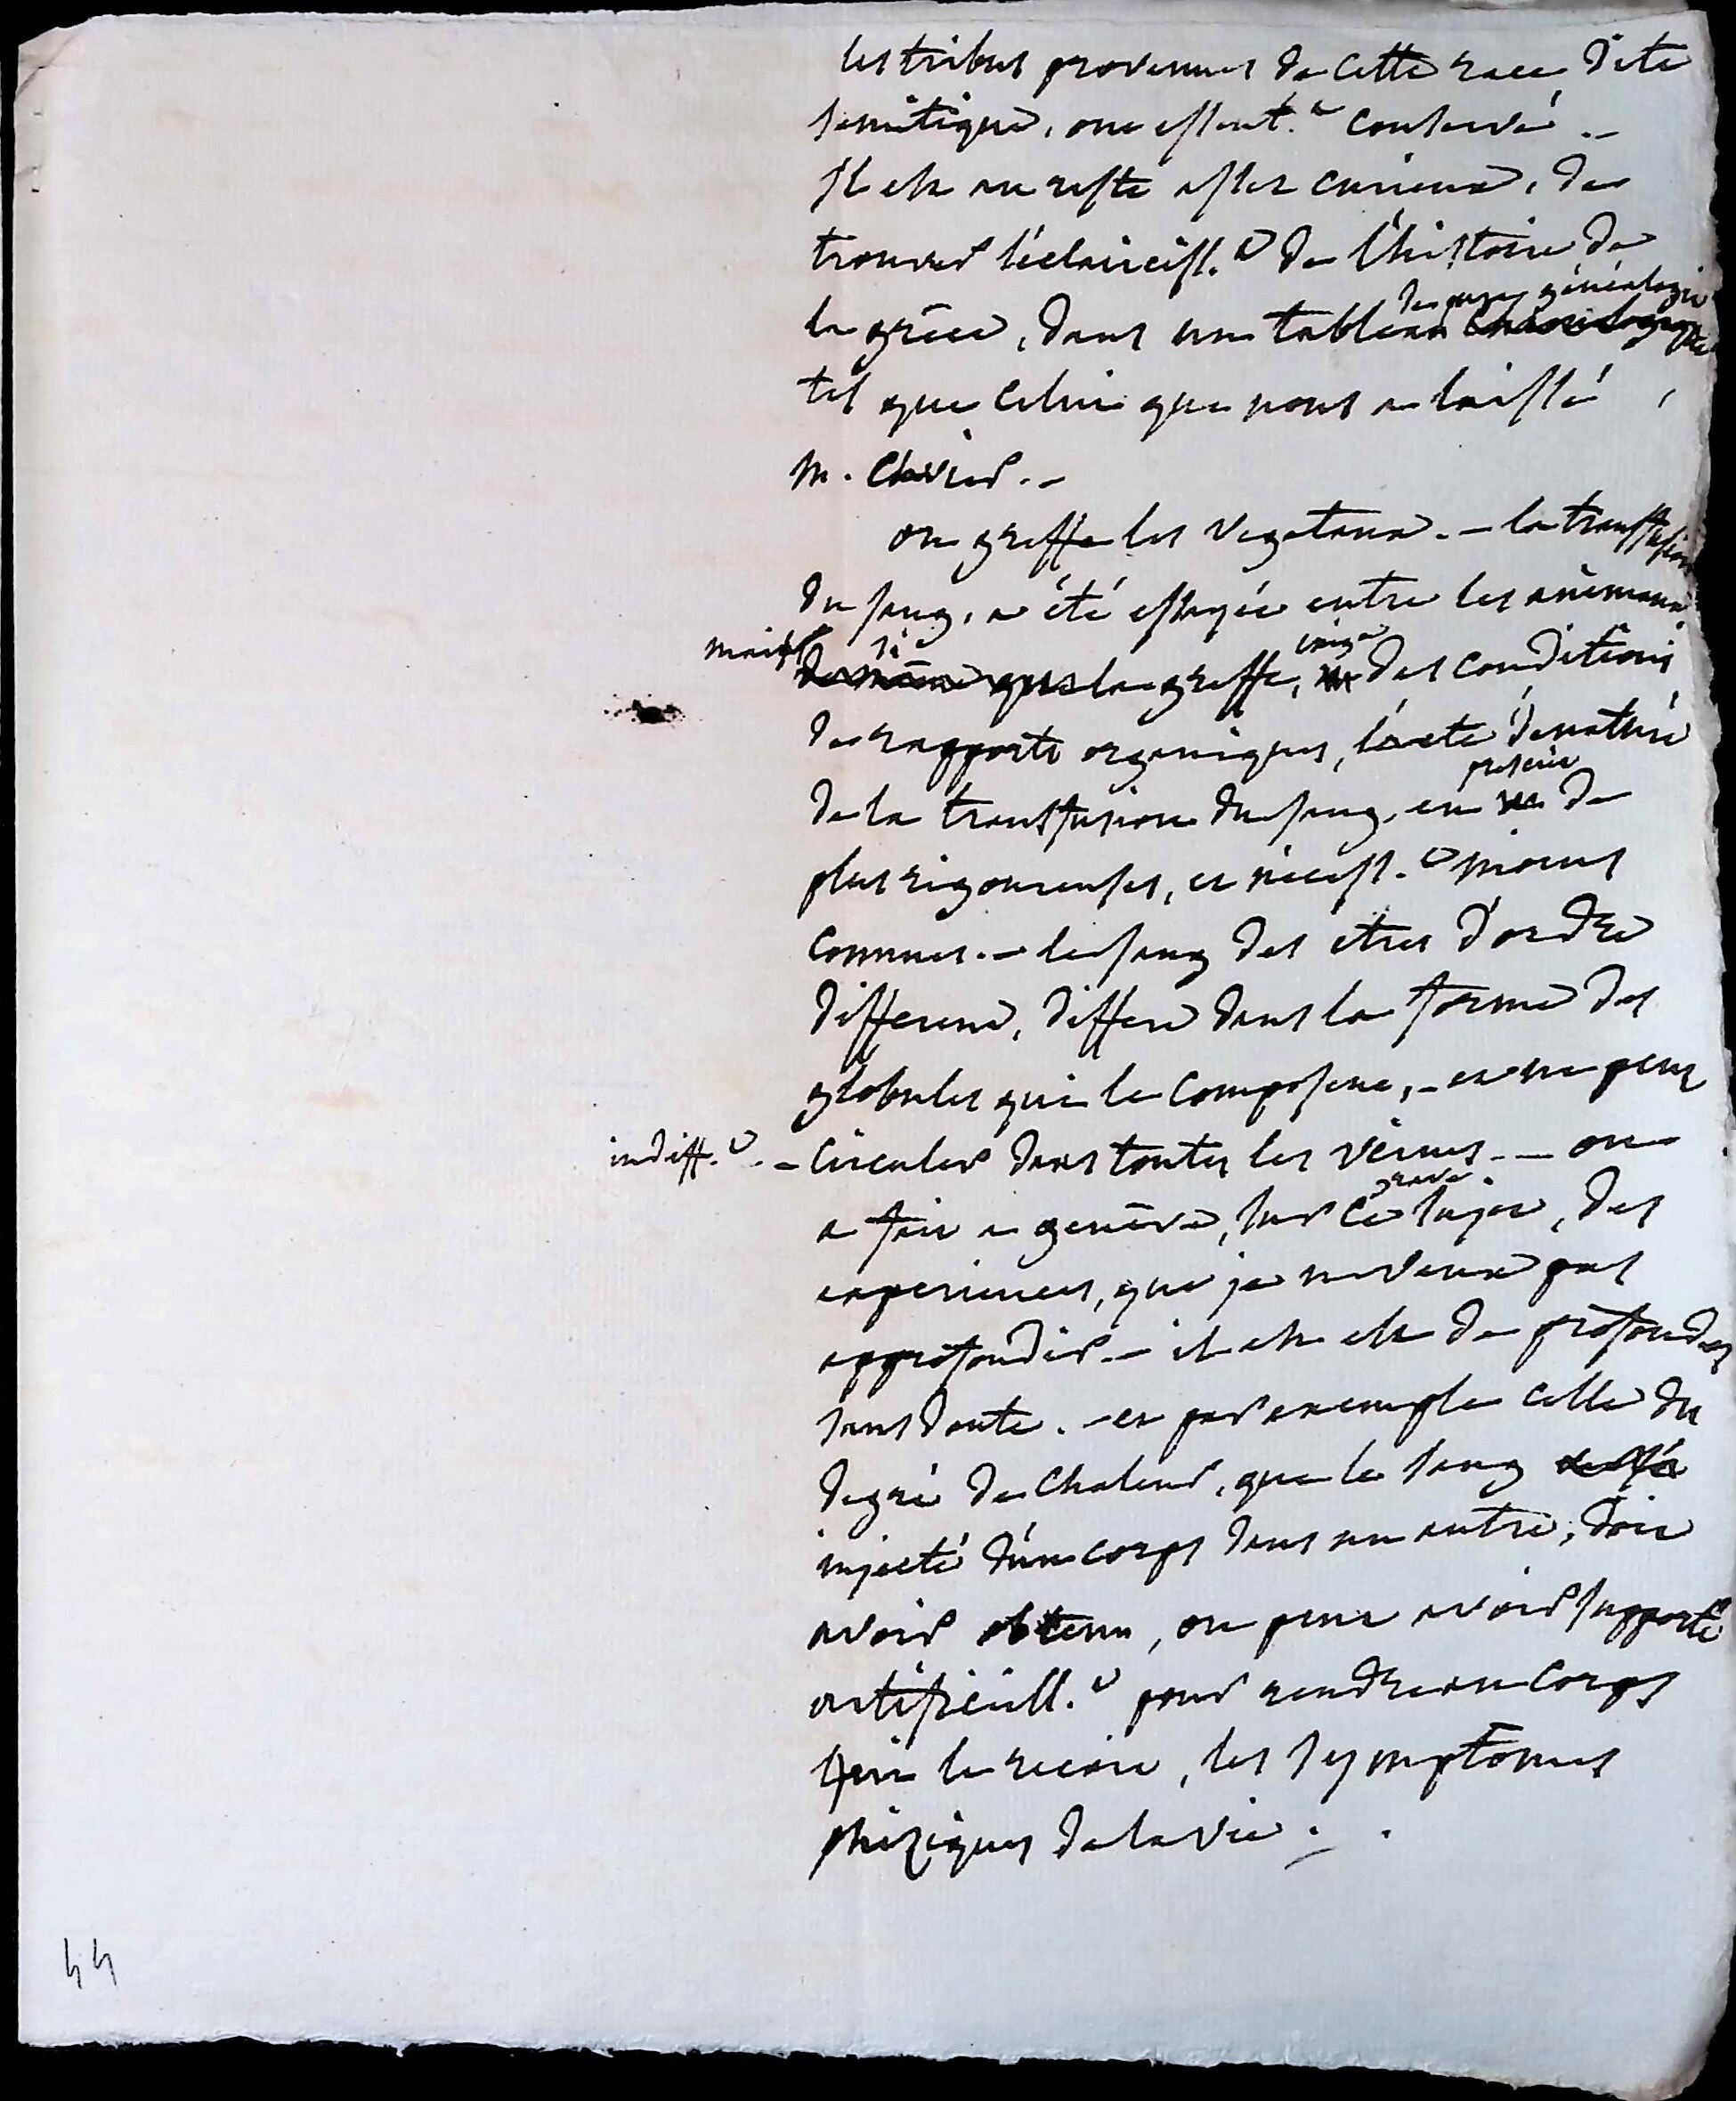 les tribus provenues de cette race dite
semitique, ont essent.t conservé. –
Il est au reste assez curieux, de
trouver l'éclairciss.t de l'histoire de
la grèce, dans un tableau de pure généalogie
tel que celui que nous a laissé
M. Clavier. –
on greffe les vegetaux. – la transfusion
du sang, a été essayée entre les animaux.
mais si la greffe, exige des conditions
de rapports organiques, l'acte dénaturé
de la transfusion du sang, en prescrit de
plus rigoureuses, et nécess.t moins
connues. – le sang des etres d'ordre
different, differe dans la forme des
globules qui le composent, – et ne peut
indiff.t – circuler dans toutes les veines. – on
a fait a genève, sur ce grave sujet, des
experiences, que je ne veux pas
approfondir. – il en est de profondes
sans doute. – et par exemple celle du
degré de chaleur, que le sang
injecté d'un corps dans un autre, doit
avoir obtenu, ou peut avoir supporté
artificiell.t pour rendre au corps
qui le recoit, les symptomes
phisiques de la vie.
44